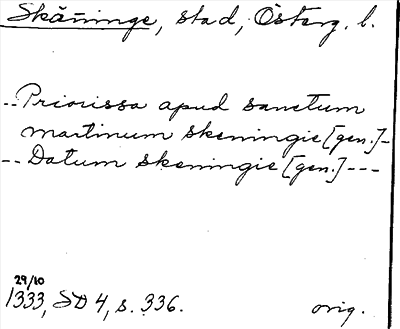 Skänninge, stad, Österg. l.
--Priorissa apud sanctum
martinum skeningie [gen.]-
--Datum skeningie [gen.]---
29/10
1333, SD 4, s. 336. orig.